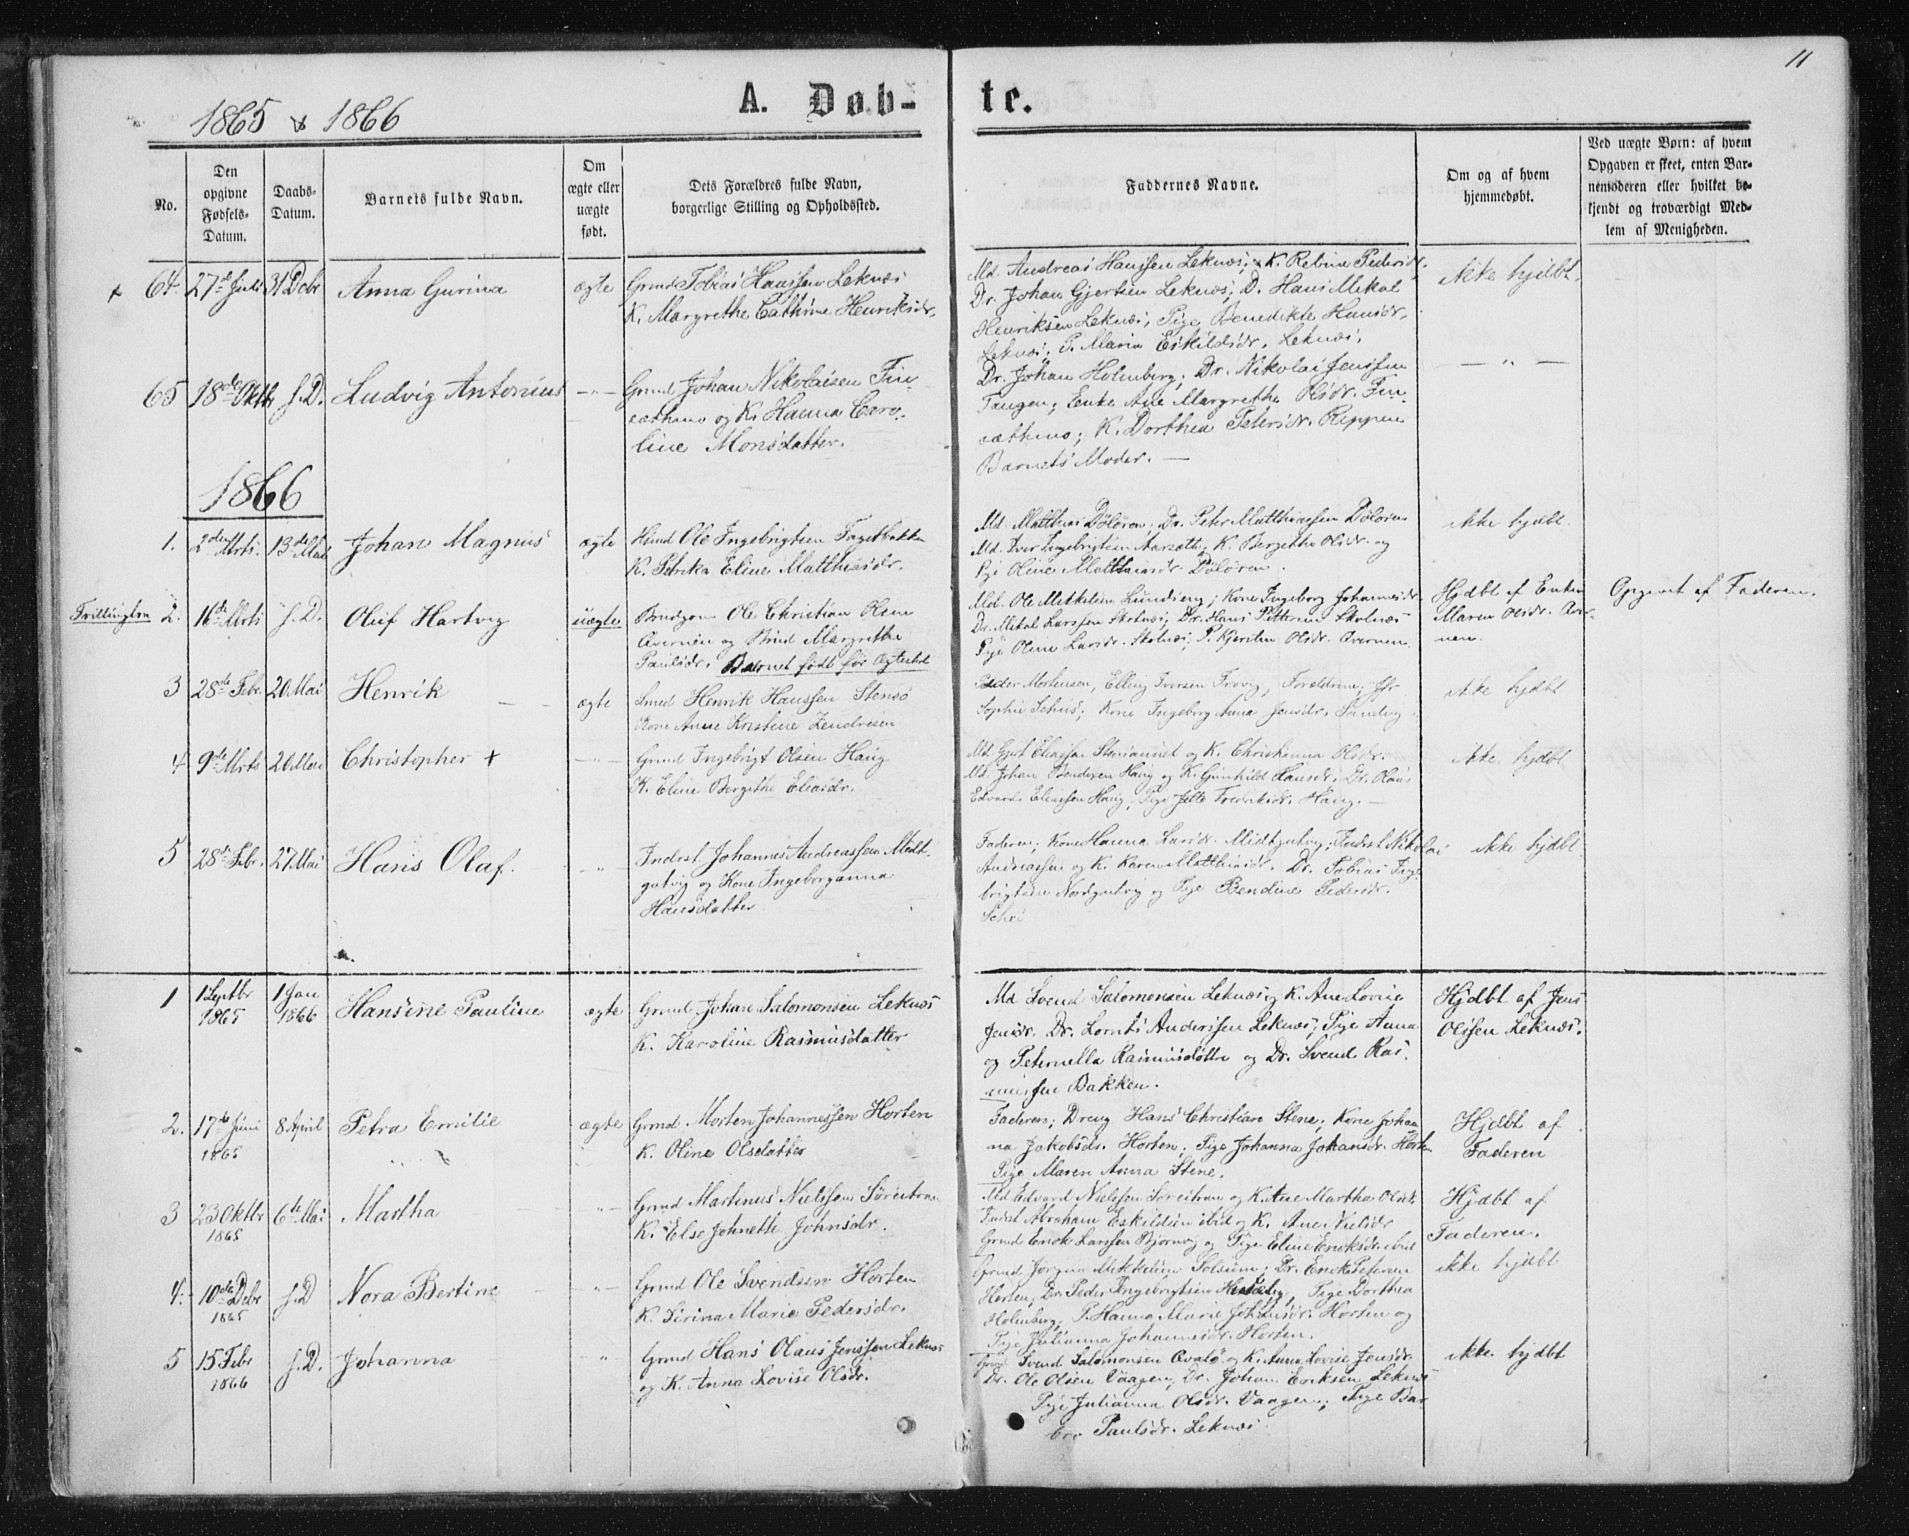 11
1865 & 1866
A. Døb-
te.
No.
Den
opgivne
Fødsels-
Datum.
Daabs-
Datum.
Barnets fulde Navn.
Om
ægte eller
uægte
født.
Dets Forældres fulde Navn,
borgerlige Stilling og Opholdssted.
Faddernes Navne.
Om og af hvem
hjemmedøbt.
Ved uægte Børn: af hvem
Opgaven er skeet, enten Bar-
nemoderen eller hvilket be-
kjendt og troværdigt Med-
lem af Menigheden.
64 27de Juli 31 Dcbr Anna Gurina ægte
Grmd Tobias Hanssen Leknæs
K. Margrethe Cathrine Henriksdr.
Md. Andreas Hanssen Leknæs; K.
Dr. Johan Gjertsen Leknæs; D. Hans Mekal
Henriksen Leknæs; Pige Benedikte Hansdr.
Leknæs; P. Maria Eskildsdr. Leknæs.
Ikke hjdbt.
65 18de Oktb s.D. Ludvig Antonius — " —
Grmd Johan Nikolaisen Fin-
sæthmo og K. Hanna Caro-
line Monsdatter.
Dr. Johan Holmberg; Dr. Nikolai Jenssen
Tangen; Enke Ane Margrethe Olsdr. Fin-
sæthmo; K. Dorthea Petersdr. Reppen
Barnets Moder. —
— " —
1866
1. 2den Mrts. 13de Mai Johan Magnus ægte
Ole Ingebrigtsen Fagerbakke
K. Petrika Eline Matthiasdr.
Md. Matthias Döløren; Dr. Peter Matthiassen Döløren
Md. Iver Ingebrigtsen K. Bergethe Olsdr. og
Pige Oline Matthiasdr Döløren.
ikke hjdbt.
Trillingbrn 2. 16de Mrts s.D. Oluf Hartvig uægte
Brudgom Ole Christian Olsen
Qvernen og Brud Margrethe
Paulsdr. Barnet født før Ægtesk
Md. Ole Mikkelsen Lundseng; Kone Ingeborg Johannesdr.
Dr. Mekal Larssen Skotnæs; Dr. Hans Pettersen Skotnæs
Pige Oline Larsdr. Skotnæs; P. Kjersten Olsdr. Qvernen
Hjdbt af Enken
Maren Olsdr. Qver-
nen.
Opgivet af Faderen.
3 28de Febr. 20 Mai Henrik ægte
Smed Henrik Hanssen Stensø
Kone Anne Kristine Zendresen
Peder Mortensen, Elling Iversen Forældrene; Jfr
Sophie Kone Ingeborg Anna Jensdr. Sandvig
ikke hjdbt
4 9de Mrts 20 Mai Christopher + — " —
Grmd Ingebrigt Olsen Haug
K. Eline Bergithe Eliasdr.
Md. Gjert Eliassen og K. Christianna Olsdr.
Md. Johan Haug og K. Gunhild Hansdr. Dr. Olaus
Edvard Eliassen Haug, Pige Jette Fredriksdr. Haug. —
ikke hjdbt
5 28de Febr. 27 Mai Hans Olaf. — " —
Inderst Johannes Andreassen Midt-
gutvig og Kone Ingeborganna
Hansdatter
Faderen; Kone Hanna Larsdr. Midtgutvig; Inderst Nikolai
Andreassen og K. Karen Matthiasdr. Dr. Tobias Inge-
brigtsen Nordgutvig og Pige Bendine Pedersdr.
ikke hjdbt
1 1 Septbr 1 Jan Hansine Pauline ægte
1865 1866
Grmd Johan Salomonsen Leknæs
K. Karoline Rasmusdatter
Md Svend Salomonsen Leknæs og K. Ane Lovise
Jensdr. Dr. Lornts Anderssen Leknæs; Pige Anna
og Peternella Rasmusdøttre og Dr. Svend Ras-
mussen Bakken.
Hjdbt af Jens
Olssen Leknæs.
2. 17de Juni 8 April Petra Emilie ægte
1865
Grmd Morten Johannessen Horten
K. Oline Olsdatter
Faderen; Dreng Hans Christian Stene; Kone Johan-
na Jakobsdr. Horten; Pige Johanna Johansdr. Horten
Pige Maren Anna Stene.
Hjdbt af
Faderen
3 23 Oktbr 6te Mai Martha — " —
1865
Grmd Martinus Nielssen
K. Else Johnette Johnsdr.
Md Edvard Nielssen og K. Ane Martha Olsdr.
Indst Abraham Eskildsen ibid og K. Ane Nielsdr
Grmd Enok Larssen Bjørnvig og Pige Eline Enoksdr. ibid
Hjdbt af
Faderen.
4. 10de Debr s.D Nora Bertine — " —
1865
Grmd Ole Svendsen Horten
K. Sirina Marie Pedersdr.
Grmd Jørgen Mikkelsen Solsem; Dr. Enok Petersen
Horten; Dr. Peder Ingebrigtsen Pige Dorthea
Holmberg; P. Hanna Marie Johansdr. Horten og
Pige Julianna Johannesdr. Horten.
ikke hjdbt
5 15 Febr s.D. Johanna "
1866
Grmd Hans Olaus Jenssen Leknæs
og K. Anna Lovise Olsdr.
Grmd Svend Salomonsen Qvalø og K. Anna Lovise Jensdr.
Dr. Ole Olsen Vaagen; Dr. Johan Eriksen Leknæs
Pige Julianna Olsdr. Vaagen; Pige Bar-
bro Paulsdr. Leknæs
ikke hjdbt